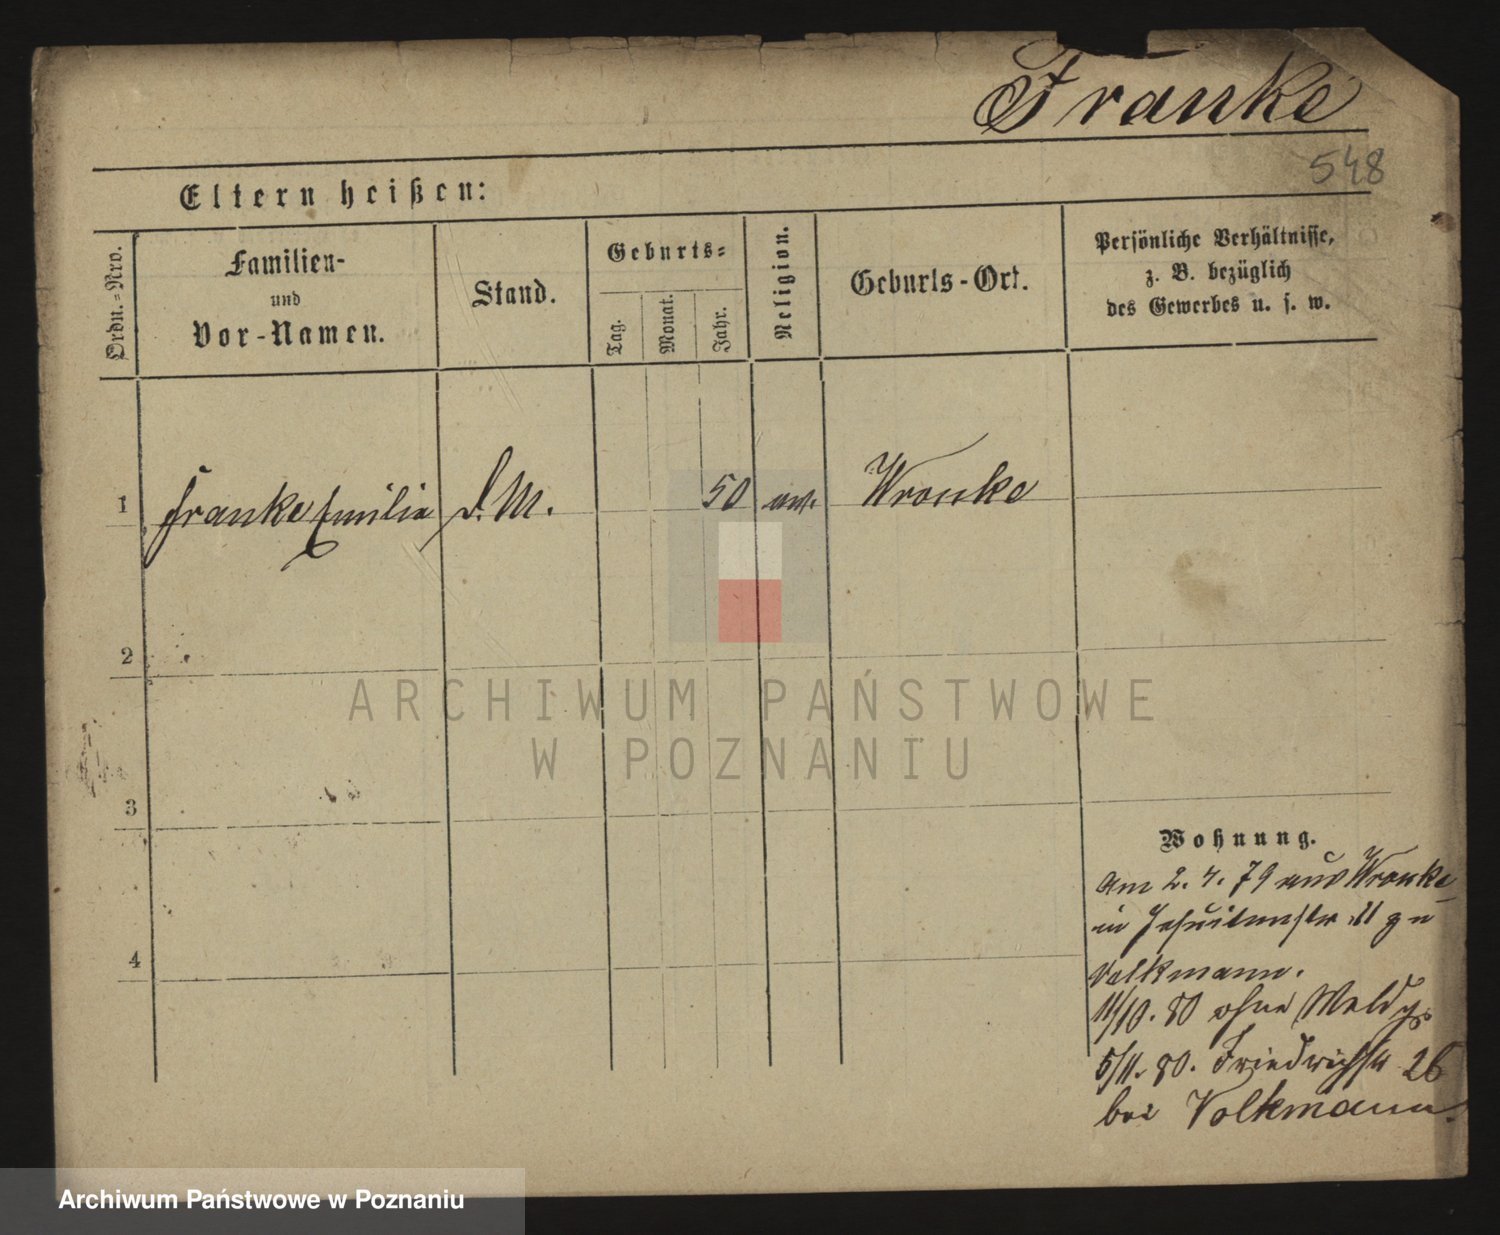 Franke
548
Eltern heißen:
Ordn.=Nro.
Familien-
und
Vor-Namen.
Stand.
Geburts=
Tag.
Monat.
Jahr.
Religion.
Geburts-Ort.
Persönliche Verhältnisse,
z. B. bezüglich
des Gewerbes u. s. w.
1 Franke Emilie d. M. 50 ev. Wronke
2
3
4
Wohnung.
am 2. 4. 79 aus Wronke
in Jesuitenstr 11 zu
Volkmann.
11/10. 80 ohne Meldg
5/11. 80. Friedrichstr 26
bei Volkmann.
ARCHIWUM PAŃSTWOWE
W POZNANIU
Archiwum Państwowe w Poznaniu